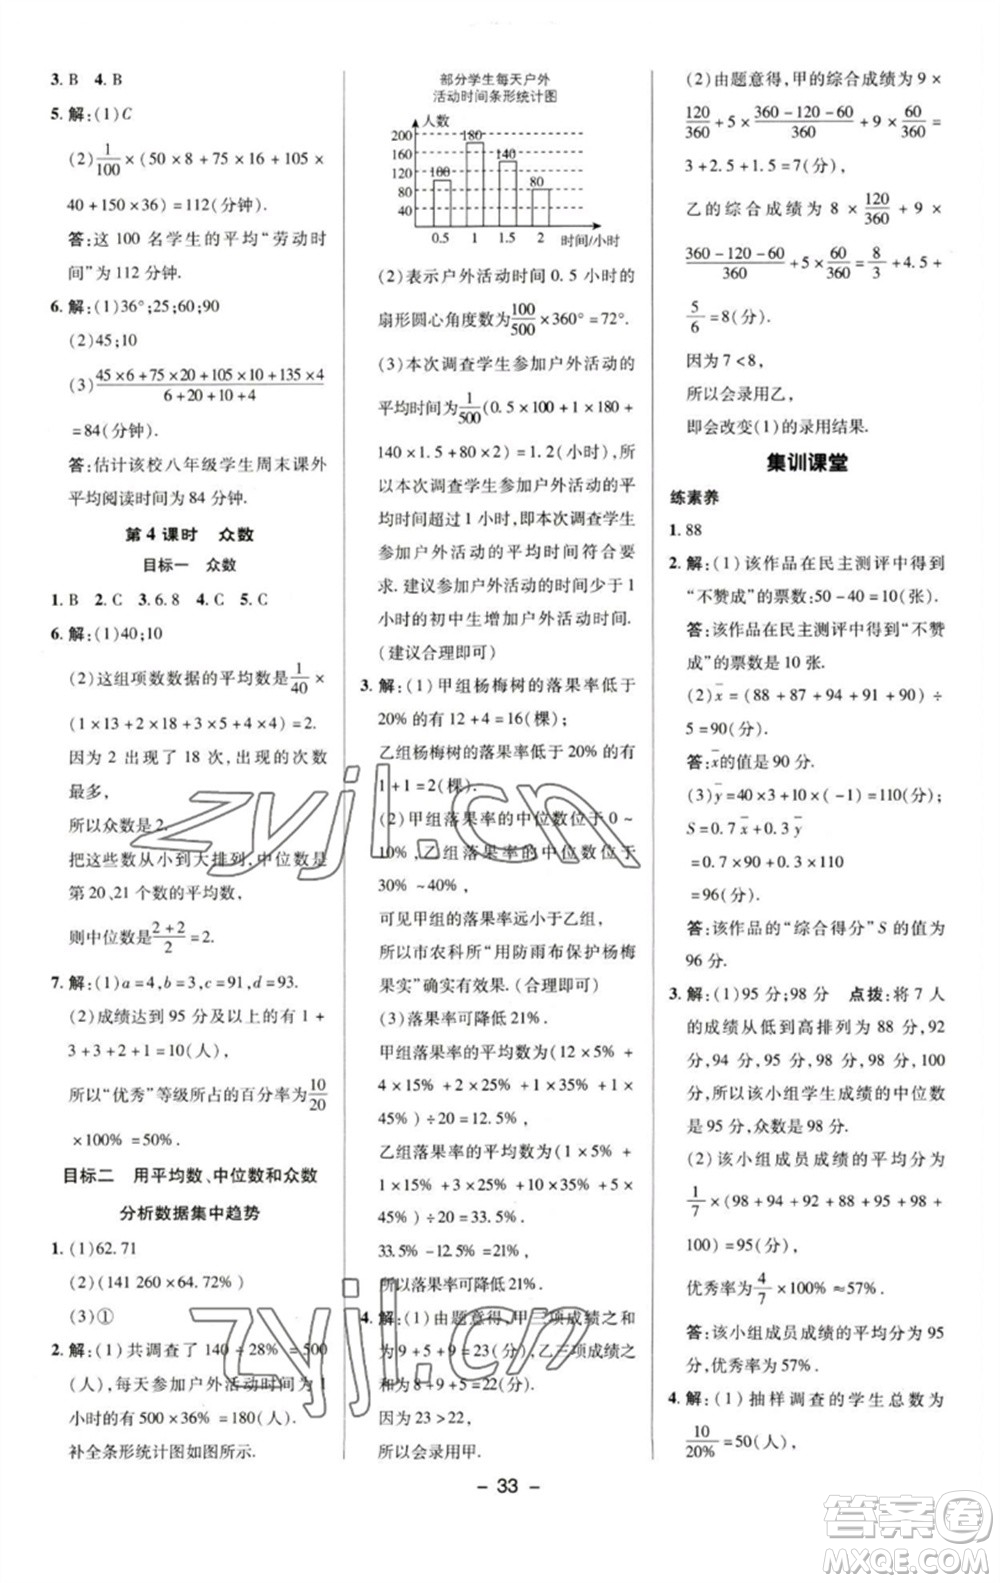 3. B  4. B
5. 解:(1)C
(2)1/100×(50×8+75×16+105×
40+150×36)=112(分钟).
答:这 100 名学生的平均“劳动时
间”为 112 分钟.
6. 解:(1)36°;25;60;90
(2)45;10
(3)(45×6+75×20+105×10+135×4)/(6+20+10+4)
=84(分钟).
答:估计该校八年级学生周末课外
平均阅读时间为 84 分钟.
第 4 课时  众数
目标一  众数
1. B  2. C  3. 6. 8  4. C  5. C
6. 解:(1)40;10
(2)这组项数数据的平均数是1/40×
(1×13+2×18+3×5+4×4)=2.
因为 2 出现了 18 次,出现的次数
最多,
所以众数是 2.
把这些数从小到大排列,中位数是
第 20、21 个数的平均数,
则中位数是(2+2)/2=2.
7. 解:(1)a=4,b=3,c=91,d=93.
(2)成绩达到 95 分及以上的有 1+
3+3+2+1=10(人),
所以“优秀”等级所占的百分率为10/20
×100%=50%.
目标二  用平均数、中位数和众数
分析数据集中趋势
1. (1)62. 71
(2)(141 260×64. 72%)
(3)①
2. 解:(1)共调查了 140÷28%=500
(人),每天参加户外活动时间为 1
小时的有 500×36%=180(人).
补全条形统计图如图所示.
部分学生每天户外
活动时间条形统计图
人数
200
160
120
80
40
100
180
140
80
0.5  1  1.5  2  时间/小时
(2)表示户外活动时间 0. 5 小时的
扇形圆心角度数为100/500×360°=72°.
(3)本次调查学生参加户外活动的
平均时间为1/500(0. 5×100+1×180+
140×1. 5+80×2)=1. 2(小时),
所以本次调查学生参加户外活动的
时间超过 1 小时,即本次调查学生
参加户外活动的平均时间符合要
求. 建议参加户外活动的时间少于 1
小时的初中生增加户外活动时间.
(建议合理即可)
3. 解:(1)甲组杨梅树的落果率低于
20%的有 12+4=16(棵);
乙组杨梅树的落果率低于 20%的有
1+1=2(棵).
(2)甲组落果率的中位数位于 0~
10%,乙组落果率的中位数位于
30%~40%,
可见甲组的落果率远小于乙组,
所以市农科所“用防雨布保护杨梅
果实”确实有效果. (合理即可)
(3)落果率可降低 21%.
甲组落果率的平均数为(12×5%+
4×15%+2×25%+1×35%+1×
45%)÷20=12. 5%,
乙组落果率的平均数为(1×5%+
1×15%+3×25%+10×35%+5×
45%)÷20=33. 5%,
33. 5%-12. 5%=21%,
所以落果率可降低 21%.
4. 解:(1)由题意得,甲三项成绩之和
为 9+5+9=23(分),乙三项成绩之
和为 8+9+5=22(分),
因为 23>22,
所以会录用甲.
(2)由题意得,甲的综合成绩为 9×
120/360+5×(360-120-60)/360+9×60/360=
3+2. 5+1. 5=7(分),
乙的综合成绩为 8×120/360+9×
(360-120-60)/360+5×60/360=8/3+4. 5+
5/6=8(分).
因为 7<8,
所以会录用乙,
即会改变(1)的录用结果.
集训课堂
练素养
1. 88
2. 解:(1)该作品在民主测评中得到
“不赞成”的票数:50-40=10(张).
答:该作品在民主测评中得到“不赞
成”的票数是 10 张.
(2)x̄=(88+87+94+91+90)÷
5=90(分).
答:x̄的值是 90 分.
(3)ȳ=40×3+10×(-1)=110(分);
S=0. 7x̄+0. 3ȳ
=0. 7×90+0. 3×110
=96(分).
答:该作品的“综合得分”S 的值为
96 分.
3. 解:(1)95 分;98 分  点拨:将 7 人
的成绩从低到高排列为 88 分,92
分,94 分,95 分,98 分,98 分,100
分,所以该小组学生成绩的中位数
是 95 分,众数是 98 分.
(2)该小组成员成绩的平均分为
1/7×(98+94+92+88+95+98+
100)=95(分),
优秀率为4/7×100%≈57%.
答:该小组成员成绩的平均分为 95
分,优秀率为 57%.
4. 解:(1)抽样调查的学生总数为
10/20%=50(人),
- 33 -
zyjl.cn
zyjl.cn
答案圈
MXQE.COM